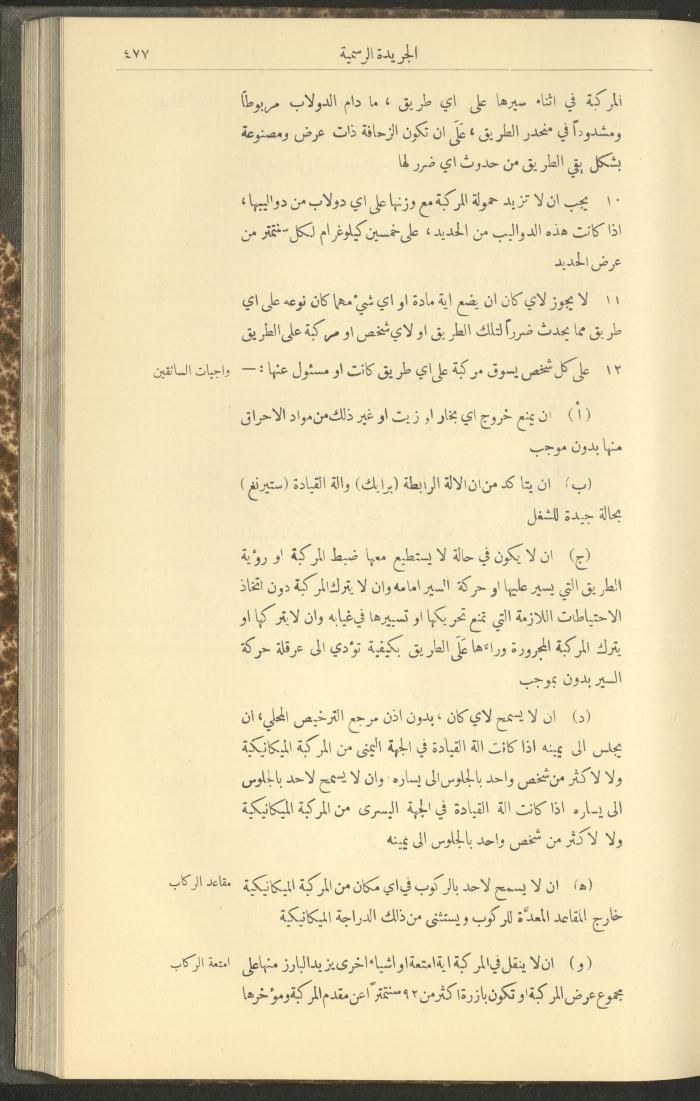 الجريدة الرسمية ٤٧٧
المركبة في اثناء سيرها على اي طريق ، ما دام الدولاب مربوطاً
ومشدوداً في منحدر الطريق ، عَلَى ان تكون الزحافة ذات عرض ومصنوعة
بشكل يقي الطريق من حدوث اي ضرر لها
١٠ يجب ان لا تزيد حمولة المركبة مع وزنها على اي دولاب من دواليبها ،
اذا كانت هذه الدواليب من الحديد ، على خمسين كيلوغرام لكل سنتمتر من
عرض الحديد
١١ لا يجوز لاي كان ان يضع اية مادة او اي شيء مهما كان نوعه على اي
طريق مما يحدث ضرراً لتلك الطريق او لاي شخص او مركبة على الطريق
١٢ على كل شخص يسوق مركبة على اي طريق كانت او مسئول عنها : —
واجبات السائقين
(أ) ان يمنع خروج اي بخار او زيت او غير ذلك من مواد الاحراق
منها بدون موجب
(ب) ان يتاكد من ان الالة الرابطة (برابك) والة القيادة (ستيرنغ)
بحالة جيدة للشغل
(ج) ان لا يكون في حالة لا يستطيع معها ضبط المركبة او رؤية
الطريق التي يسير عليها او حركة السير امامه وان لا يترك المركبة دون اتخاذ
الاحتياطات اللازمة التي تمنع تحريكها او تسييرها في غيابه وان لا يتركها او
يترك المركبة المجرورة وراءها عَلَى الطريق بكيفية تؤدي الى عرقلة حركة
السير بدون بموجب
(د) ان لا يسمح لاي كان ، بدون اذن مرجع الترخيص المحلي ، ان
يجلس الى يمينه اذا كانت الة القيادة في الجهة اليمنى من المركبة الميكانيكية
ولا لاكثر من شخص واحد بالجلوس الى يساره . وان لا يسمح لاحد بالجلوس
الى يساره اذا كانت الة القيادة في الجهة اليسرى من المركبة الميكانيكية
ولا لاكثر من شخص واحد بالجلوس الى يمينه
(ه) ان لا يسمح لاحد بالركوب في اي مكان من المركبة الميكانيكية
مقاعد الركاب
خارج المقاعد المعدَّة للركوب ويستثنى من ذلك الدراجة الميكانيكية
(و) ان لا ينقل في المركبة اية امتعة او اشياء اخرى يزيد البارز منها على
امتعة الركاب
مجموع عرض المركبة او تكون بارزة اكثر من ٩٢ سنتمتراً عن مقدم المركبة ومؤخرها